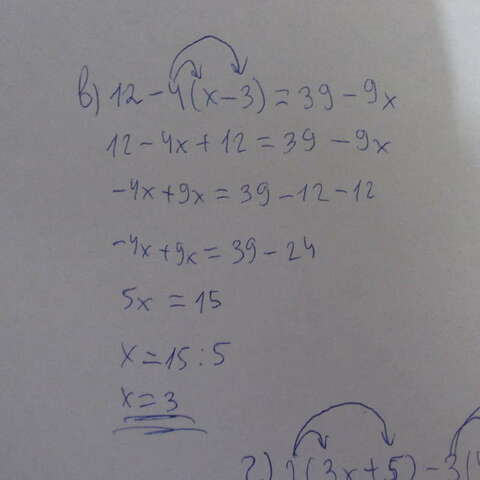 в) 12 - 4(x - 3) = 39 - 9x
12 - 4x + 12 = 39 - 9x
-4x + 9x = 39 - 12 - 12
-4x + 9x = 39 - 24
5x = 15
x = 15 : 5
x = 3
(3x + 5) - 3(